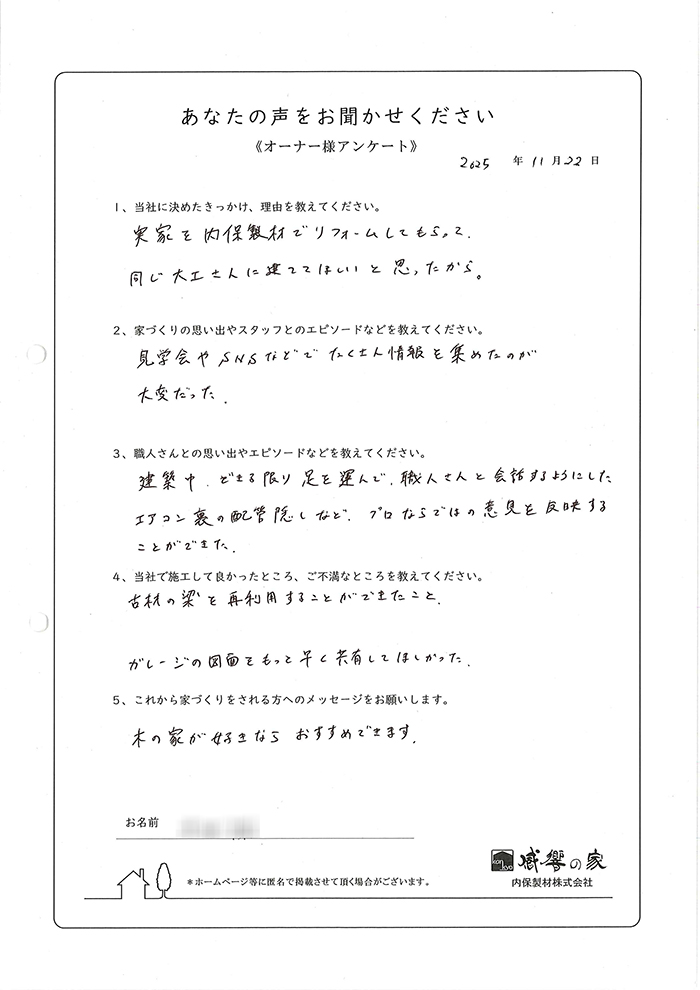 あなたの声をお聞かせください
《オーナー様アンケート》
2025 年 11 月 22 日
1、当社に決めたきっかけ、理由を教えてください。
実家を内保製材でリフォームしてもらって、
同じ大工さんに建ててほしいと思ったから。
2、家づくりの思い出やスタッフとのエピソードなどを教えてください。
見学会やSNSなどでたくさん情報を集めたのが
大変だった.
3、職人さんとの思い出やエピソードなどを教えてください。
建築中、できる限り足を運んで、職人さんと会話するようにした
エアコン裏の配管隠しなど、プロならではの意見を反映する
ことができた.
4、当社で施工して良かったところ、ご不満なところを教えてください。
古材の梁を再利用することができたこと.
ガレージの図面をもっと早く共有してほしかった.
5、これから家づくりをされる方へのメッセージをお願いします。
木の家が好きなら おすすめできます.
お名前
*ホームページ等に匿名で掲載させて頂く場合がございます。
感響の家
内保製材株式会社